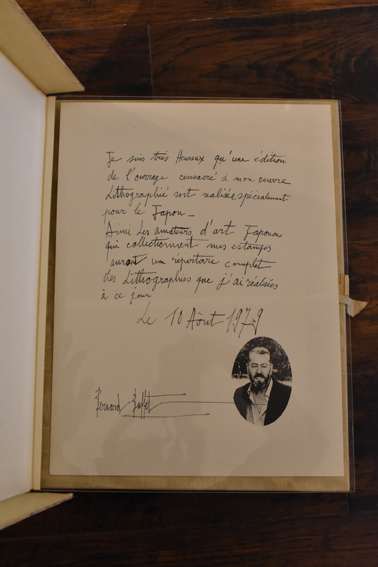 Je suis très Heureux qu'une édition
de l'ouvrage consacré à mon oeuvre
Lithographié soit réalisée spécialement
pour le Japon_
Ainsi Les amateurs d'art Japonais
qui collectionnent mes estampes
auront un répertoire complet
des Lithographies que j'ai réalisées
à ce jour
Le 10 Août 1979
Bernard Buffet